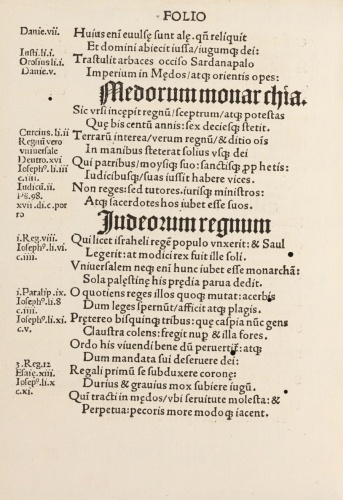 FOLIO
Danie.vii.
Huius eni euulsę sunt alę. qn̄ reliquit
Et domini abiecit iussa/iugumq; dei:
Iusti.li.i.
Orosius li.i
Trastulit arbaces occiso Sardanapalo
Danie.v.
Imperium in Mędos/atq; orientis opes:
Medorum monarchia.
Sic vrsi incepit regnū/sceptrum/atq; potestas
Quę bis centū annis: sex deciesq; stetit.
Curcius.li.ii
Terrarū interea/verum regnū/& ditio oīs
Regnū vero
vniuersale
In manibus steterat solius vsq; dei
Deutro.xvi
Qui patribus/moysiq; suo: sanctisq; pphetis:
Ioseph⁹.li.iii
c.iiii.
Iudicibusq;/suas iussit habere vices.
Iudicū.ii.
Non reges: sed tutores. iurisq; ministros:
Ps.98.
Atq; sacerdotes hos iubet esse suos.
xvii.di.c.por
ro
Iudeorum regnum
i.Reg.viii.
Qui licet israheli regē populo vnxerit: & Saul
Ioseph⁹.li.vi.
c.iiii.
Legerit: at modici rex fuit ille soli.
Vniuersalem neq; eni hunc iubet esse monarchā:
Sola palęstinę his prędia parua dedit.
i.Paralip.ix.
O quotiens reges illos quoq; mutat: acerbis
Ioseph⁹.li.8
c.iiii.
Dum leges spernūt/afficit atq; plagis.
Ioseph⁹.li.xi.
c.v.
Prętereo bisquinq; tribus: quę caspia nūc gens
Claustra colens: fregit nup & illa fores.
Ordo his viuendi bene dū peruertit: atq;
Dum mandata sui deseruere dei:
3.Reg.12
Regali primū se subduxere coronę:
Esaię.xiii.
Ioseph⁹.li.x
Durius & grauius mox subiere iugū.
c.xi.
Quī tracti in mędos/vbi seruitute molesta: &
Perpetua: pecoris more modoq; iacent.